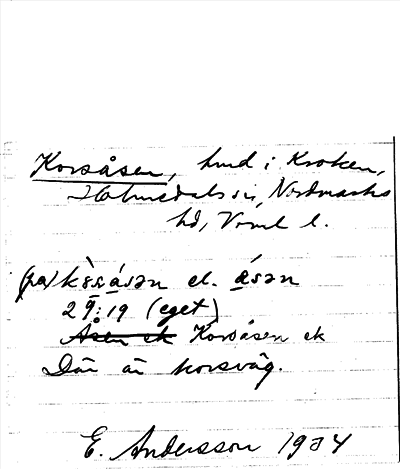 Korsåsen, hmd i Kroken,
Holmedals sn, Nordmarks
hd, Verml l.
(pa) kɔ̀sásən el. ásən
29:19 (eget)
Åsen ek Korsåsen ek
Där är korsväg.
E. Andersson 1934